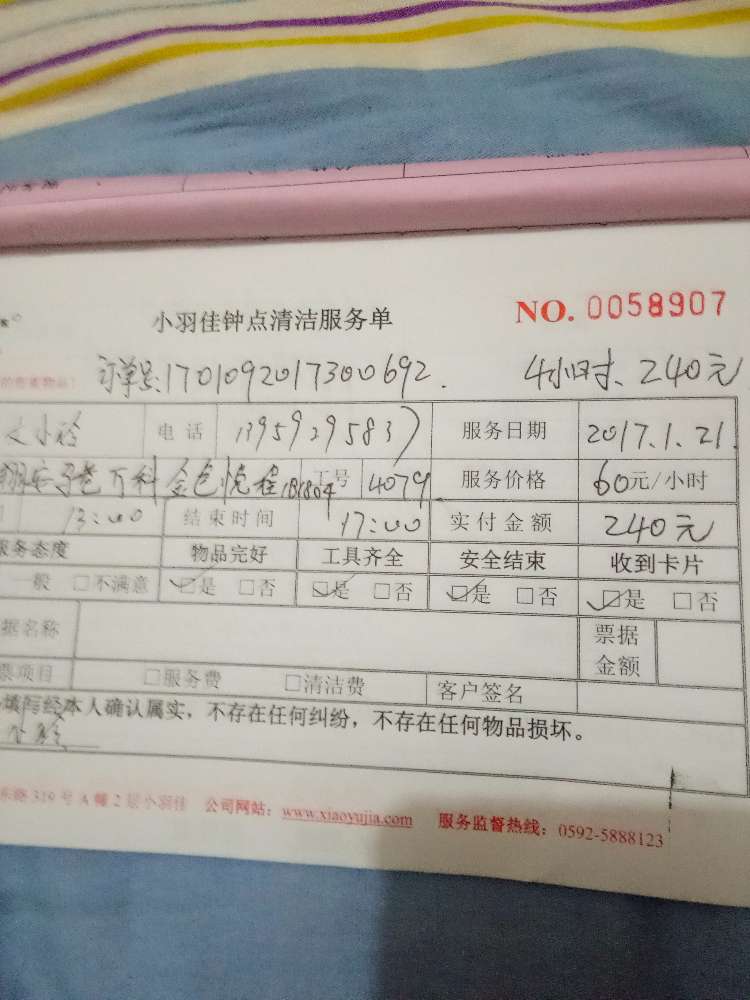 小羽佳钟点清洁服务单 NO. 0058907
的贵重物品!
订单号:1701092017300692. 4小时、240元
小玲 电话 13959295837 服务日期 2017.1.21.
翔安 万科金色悦程 1B1804 工号 4079 服务价格 60元/小时
13:00 结束时间 17:00 实付金额 240元
服务态度 物品完好 工具齐全 安全结束 收到卡片
一般 □不满意 ☑是 □否 ☑是 □否 ☑是 □否 ☑是 □否
据名称 票据金额
票项目 □服务费 □清洁费 客户签名
填写经本人确认属实，不存在任何纠纷，不存在任何物品损坏。
东路319号A幢2层小羽佳 公司网站：www.xiaoyujia.com 服务监督热线：0592-5888123